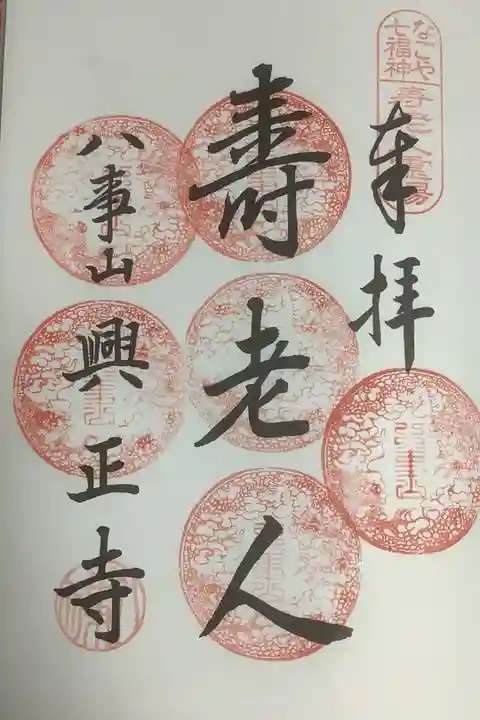 なごや
七福神
寿老人霊場
奉拝
寿老人
八事山興正寺